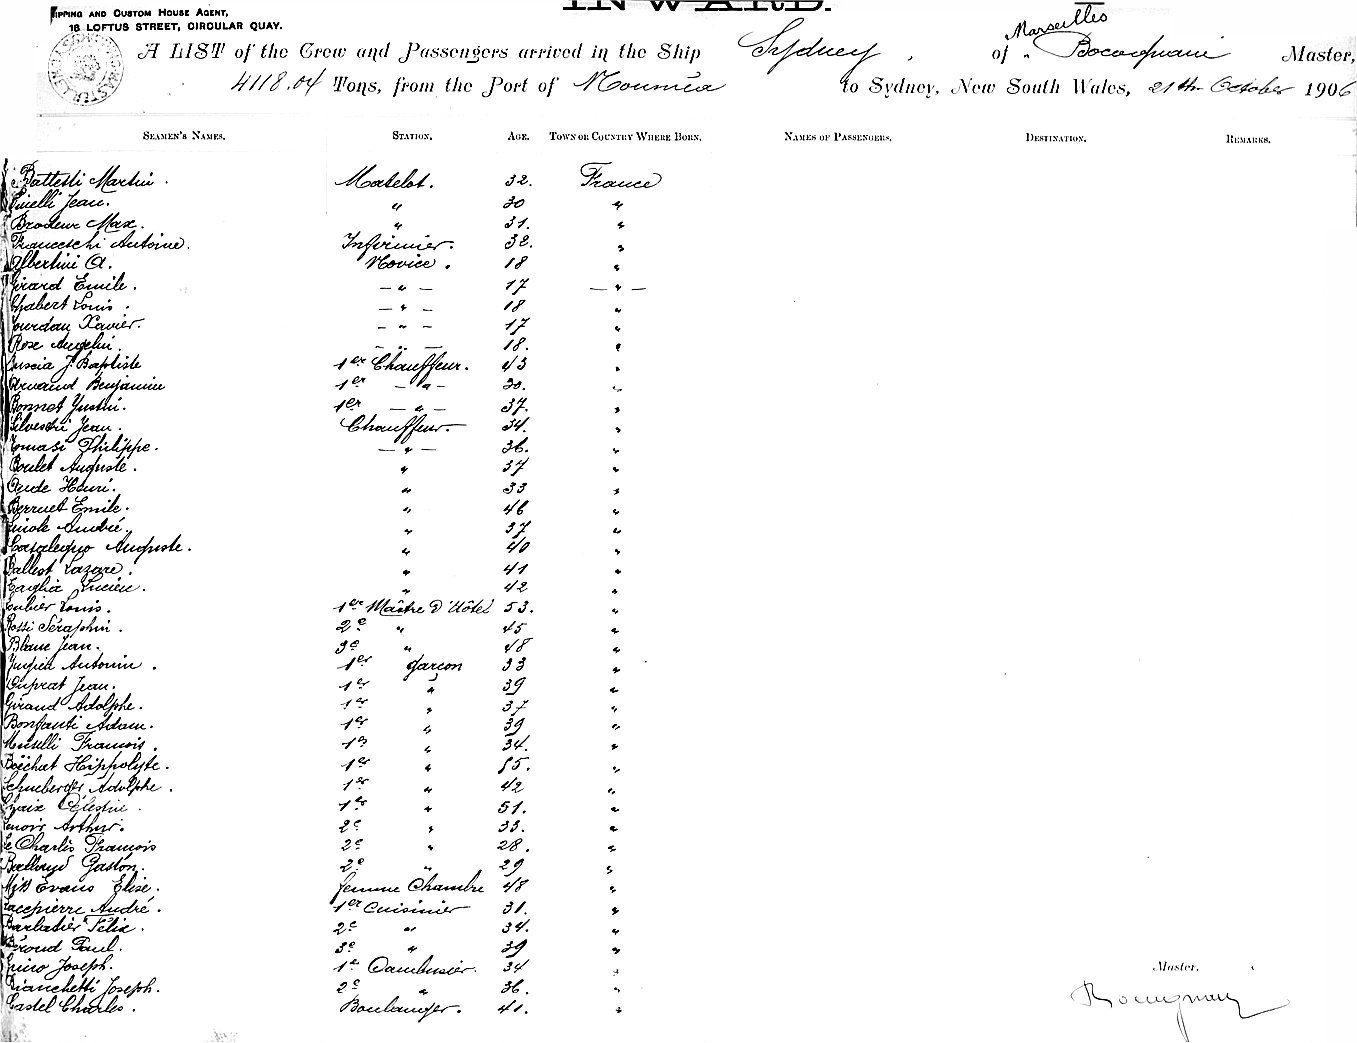 INWARD.
SHIPPING AND CUSTOM HOUSE AGENT,
18 LOFTUS STREET, CIRCULAR QUAY.
A LIST of the Crew and Passengers arrived in the Ship Sydney, of Marseilles Master,
4118.04 Tons, from the Port of Nouméa to Sydney, New South Wales, 21th October 1906
SEAMEN'S NAMES. STATION. AGE. TOWN OR COUNTRY WHERE BORN. NAMES OF PASSENGERS. DESTINATION. REMARKS.
Battesti Martin. Matelot. 32. France
Jean. " 30 "
Brodeur Max. " 31. "
Franceschi Antoine. Infirmier. 32. "
Albertini A. Novice. 18 "
Girard Emile. — " — 17 — " —
Chabert Louis. — " — 18 "
Jourdan Xavier. — " — 17 "
Rose Angelin. — " — 18. "
J. Baptiste 1er Chauffeur. 43 "
Arnaud Benjamin 1er — " — 30. "
Bonnet Justin. 1er — " — 37. "
Silvestri Jean. Chauffeur. 34. "
Tomasi Philippe. — " — 36. "
Boulet Auguste. " 37 "
Aude Henri. " 33 "
Berruet Emile. " 46 "
André. " 37 "
Casalegno Auguste. " 40 "
Ballest Lazare. " 41 "
Taglia Lucien. " 42 "
Louis. 1er Maître d'Hôtel 53. "
Rossi Séraphin. 2e " 45 "
Blanc Jean. 3e " 48 "
Antonin. 1er garçon 33 "
Duprat Jean. 1er " 39 "
Giraud Adolphe. 1er " 37 "
Bonfanti Adam. 1er " 39 "
Muselli Francois. 1er " 34. "
Boëchat Hippolyte. 1er " 55. "
Schneberger Adolphe. 1er " 42 "
Chaix Célestin. 1er " 51. "
Lenoir Arthur. 2e " 33. "
Le Charlès Francois 2e " 28. "
Gaston. 2e " 29 "
Evans Elise. femme Chambre 48 "
Lacepierre André. 1er Cuisinier 31. "
Barbatier Félix. 2e " 34. "
Béroud Paul. 3e " 39 "
Joseph. 1er Cambusier. 34 "
Bianchetti Joseph. 2e " 36. "
Castel Charles. Boulanger. 41. "
Master.